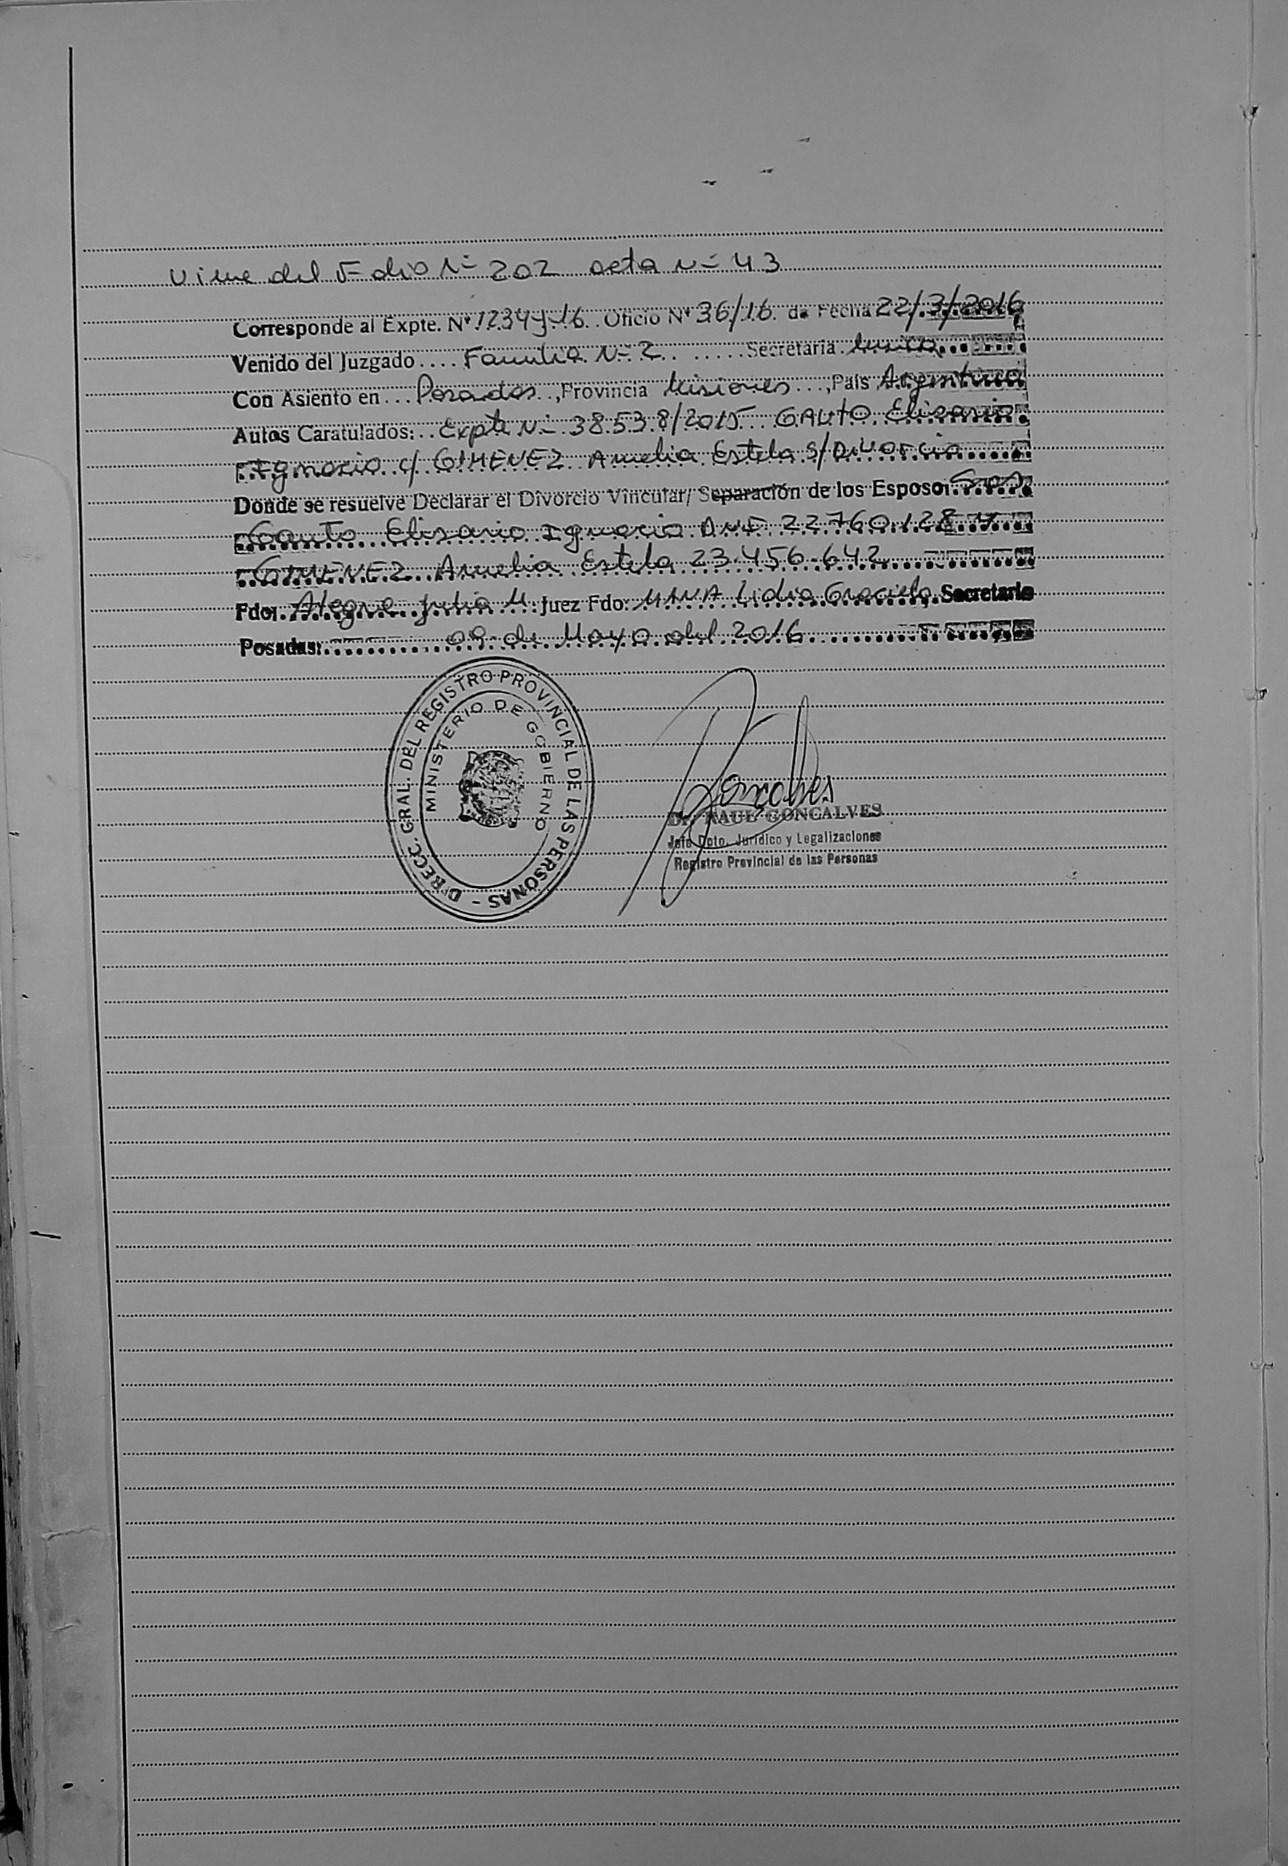 Viene del Folio Nº 202 acta Nº 43
Corresponde al Expte. Nº 1234-J-16. Oficio Nº 36/16. de Fecha 22/3/2016
Venido del Juzgado .... Familia Nº 2 ..... Secretaria única
Con Asiento en ... Posadas .., Provincia Misiones ..., País Argentina
Autos Caratulados: .. Expte Nº 38538/2015 GAUTO Elisario
Ignacio c/ GIMENEZ Amelia Estela S/Divorcio
Donde se resuelve Declarar el Divorcio Vincular/ Separación de los Esposo: Sres
Gauto Elisario Ignacio DNI 22.760.128 y
GIMENEZ Amelia Estela 23.456.642
Fdo: Alegre Julia M. Juez Fdo: Lidia Graciela Secretario
Posadas: 09 de Mayo del 2016
DIRECC. GRAL. DEL REGISTRO PROVINCIAL DE LAS PERSONAS -
MINISTERIO DE GOBIERNO
Goncalves
Dr. RAUL GONCALVES
Jefe Dpto. Jurídico y Legalizaciones
Registro Provincial de las Personas